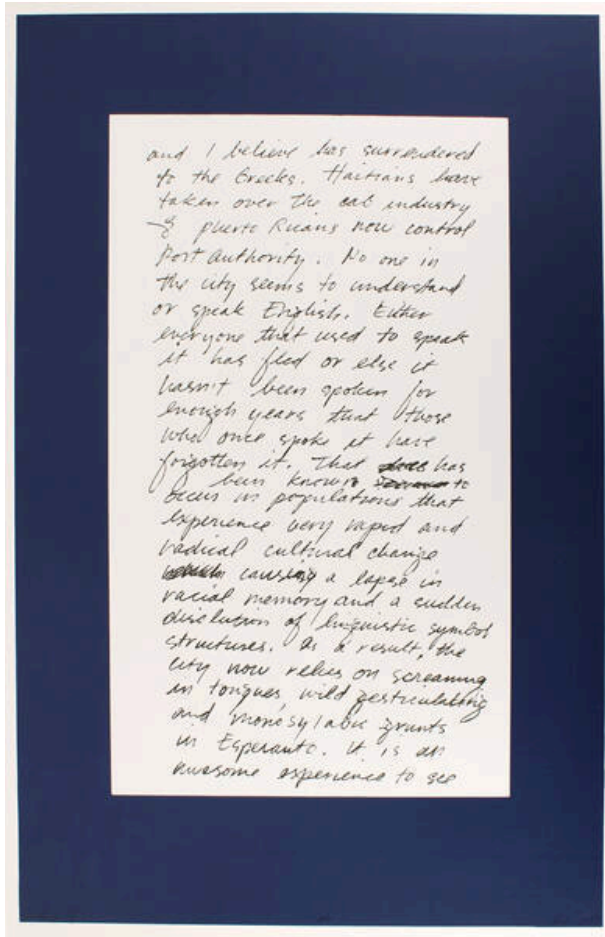 and I believe has surrendered
to the Greeks. Haitians have
taken over the cab industry
& puerto Ricans now control
Port Authority. No one in
the city seems to understand
or speak English. Either
everyone that used to speak
it has fled or else it
hasn't been spoken for
enough years that those
who once spoke it have
forgotten it. That has
been known to
occur in populations that
experience very rapid and
radical cultural change
causing a lapse in
racial memory and a sudden
disolution of linguistic symbol
structures. As a result, the
city now relies on screaming
in tongues, wild gesticulating
and monosylabic grunts
in Esperanto. It is an
awesome experience to see